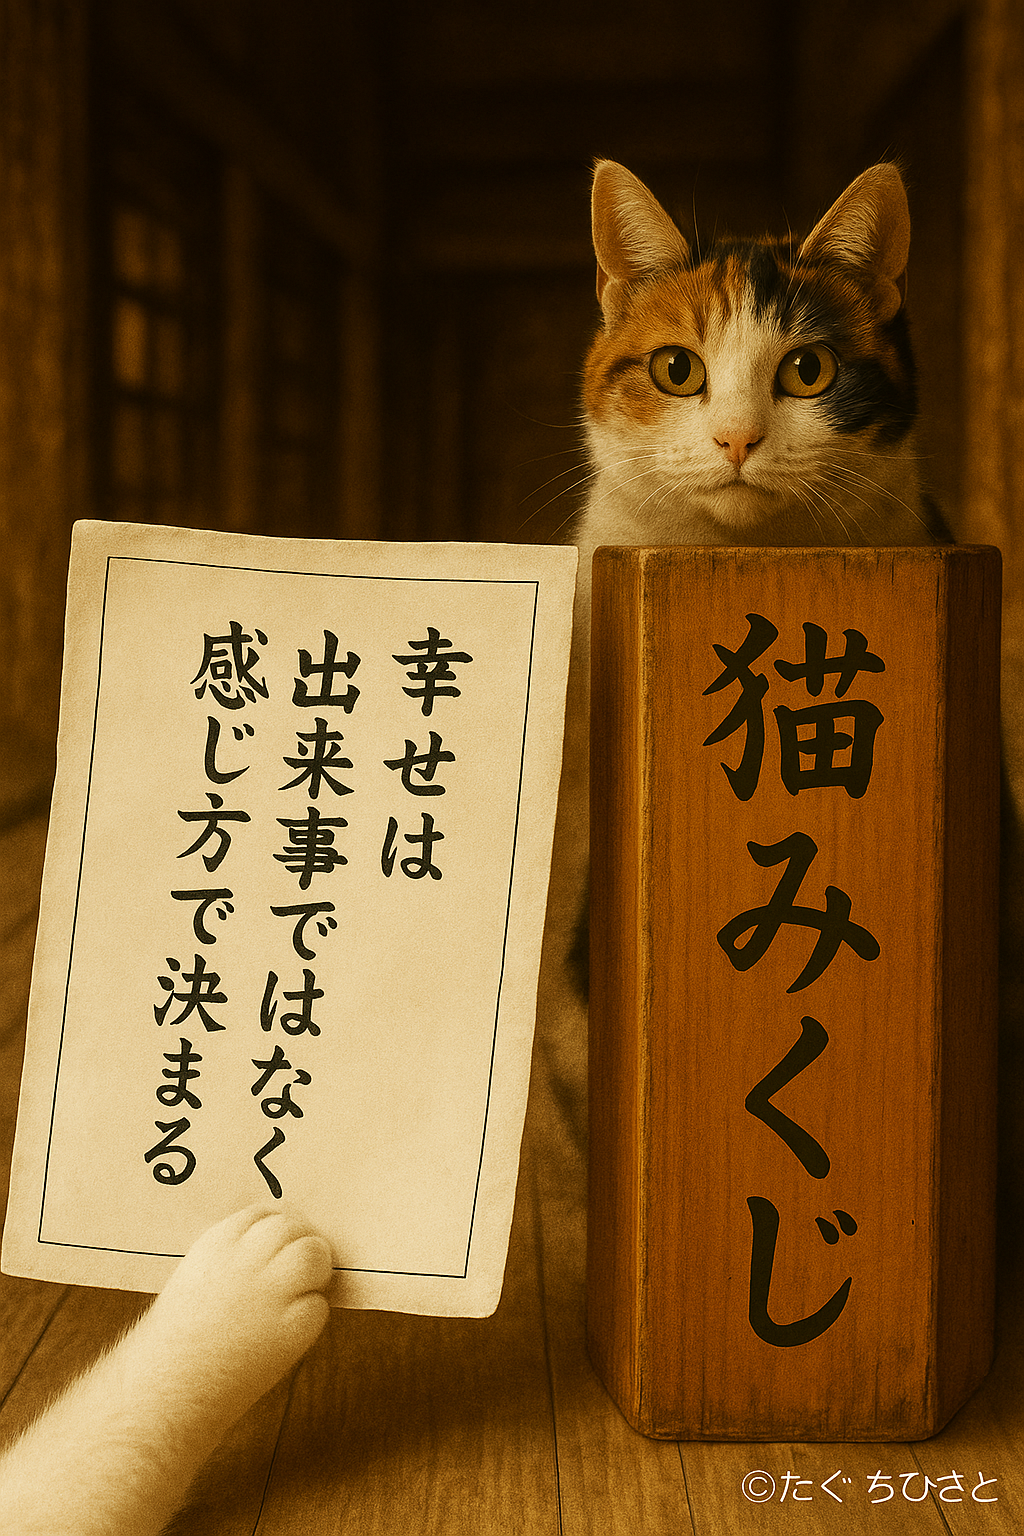 幸せは
出来事ではなく
感じ方で決まる
猫みくじ
©たぐ ちひさと